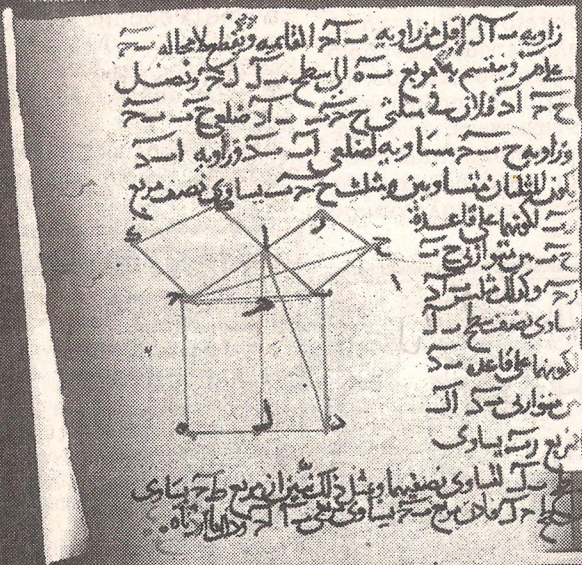 زاويه ب ا ل اقل من زاويه ب ا ح القائمه ونقطع لا محاله ب ح
على م وينقسم بها مربع ب ه الى سطحى ب ل ل ح ونصل
ح ح ا د فلان فى مثلثى ح ح ب ب ا د ضلعى ح ب ب ح
وزاويه ح ب ح مساويه لضلعى ا ب ب د وزاويه ا ب د
يكون المثلثان متساويين ومثلث ح ح ب يساوى نصف مربع
ر ب لكونهما على قاعدة
ح ب بين متوازيى ح ب
ر ح وكذلك مثلث ا ب د
يساوى نصف سطح ب ل
لكونهما على قاعده ب د
بين متوازيى ب د ا ل
فمربع ر ب يساوى
سطح ب ل لتساوى نصفيهما وبمثل ذلك نبين ان مربع ط ح يساوى
سطح ح ل فاذن مربع ب ح يساوى مربعى ب ا ا ح وذلك ما اردناه
ر
ا
ح
ب
ح
م
د
ل
ه